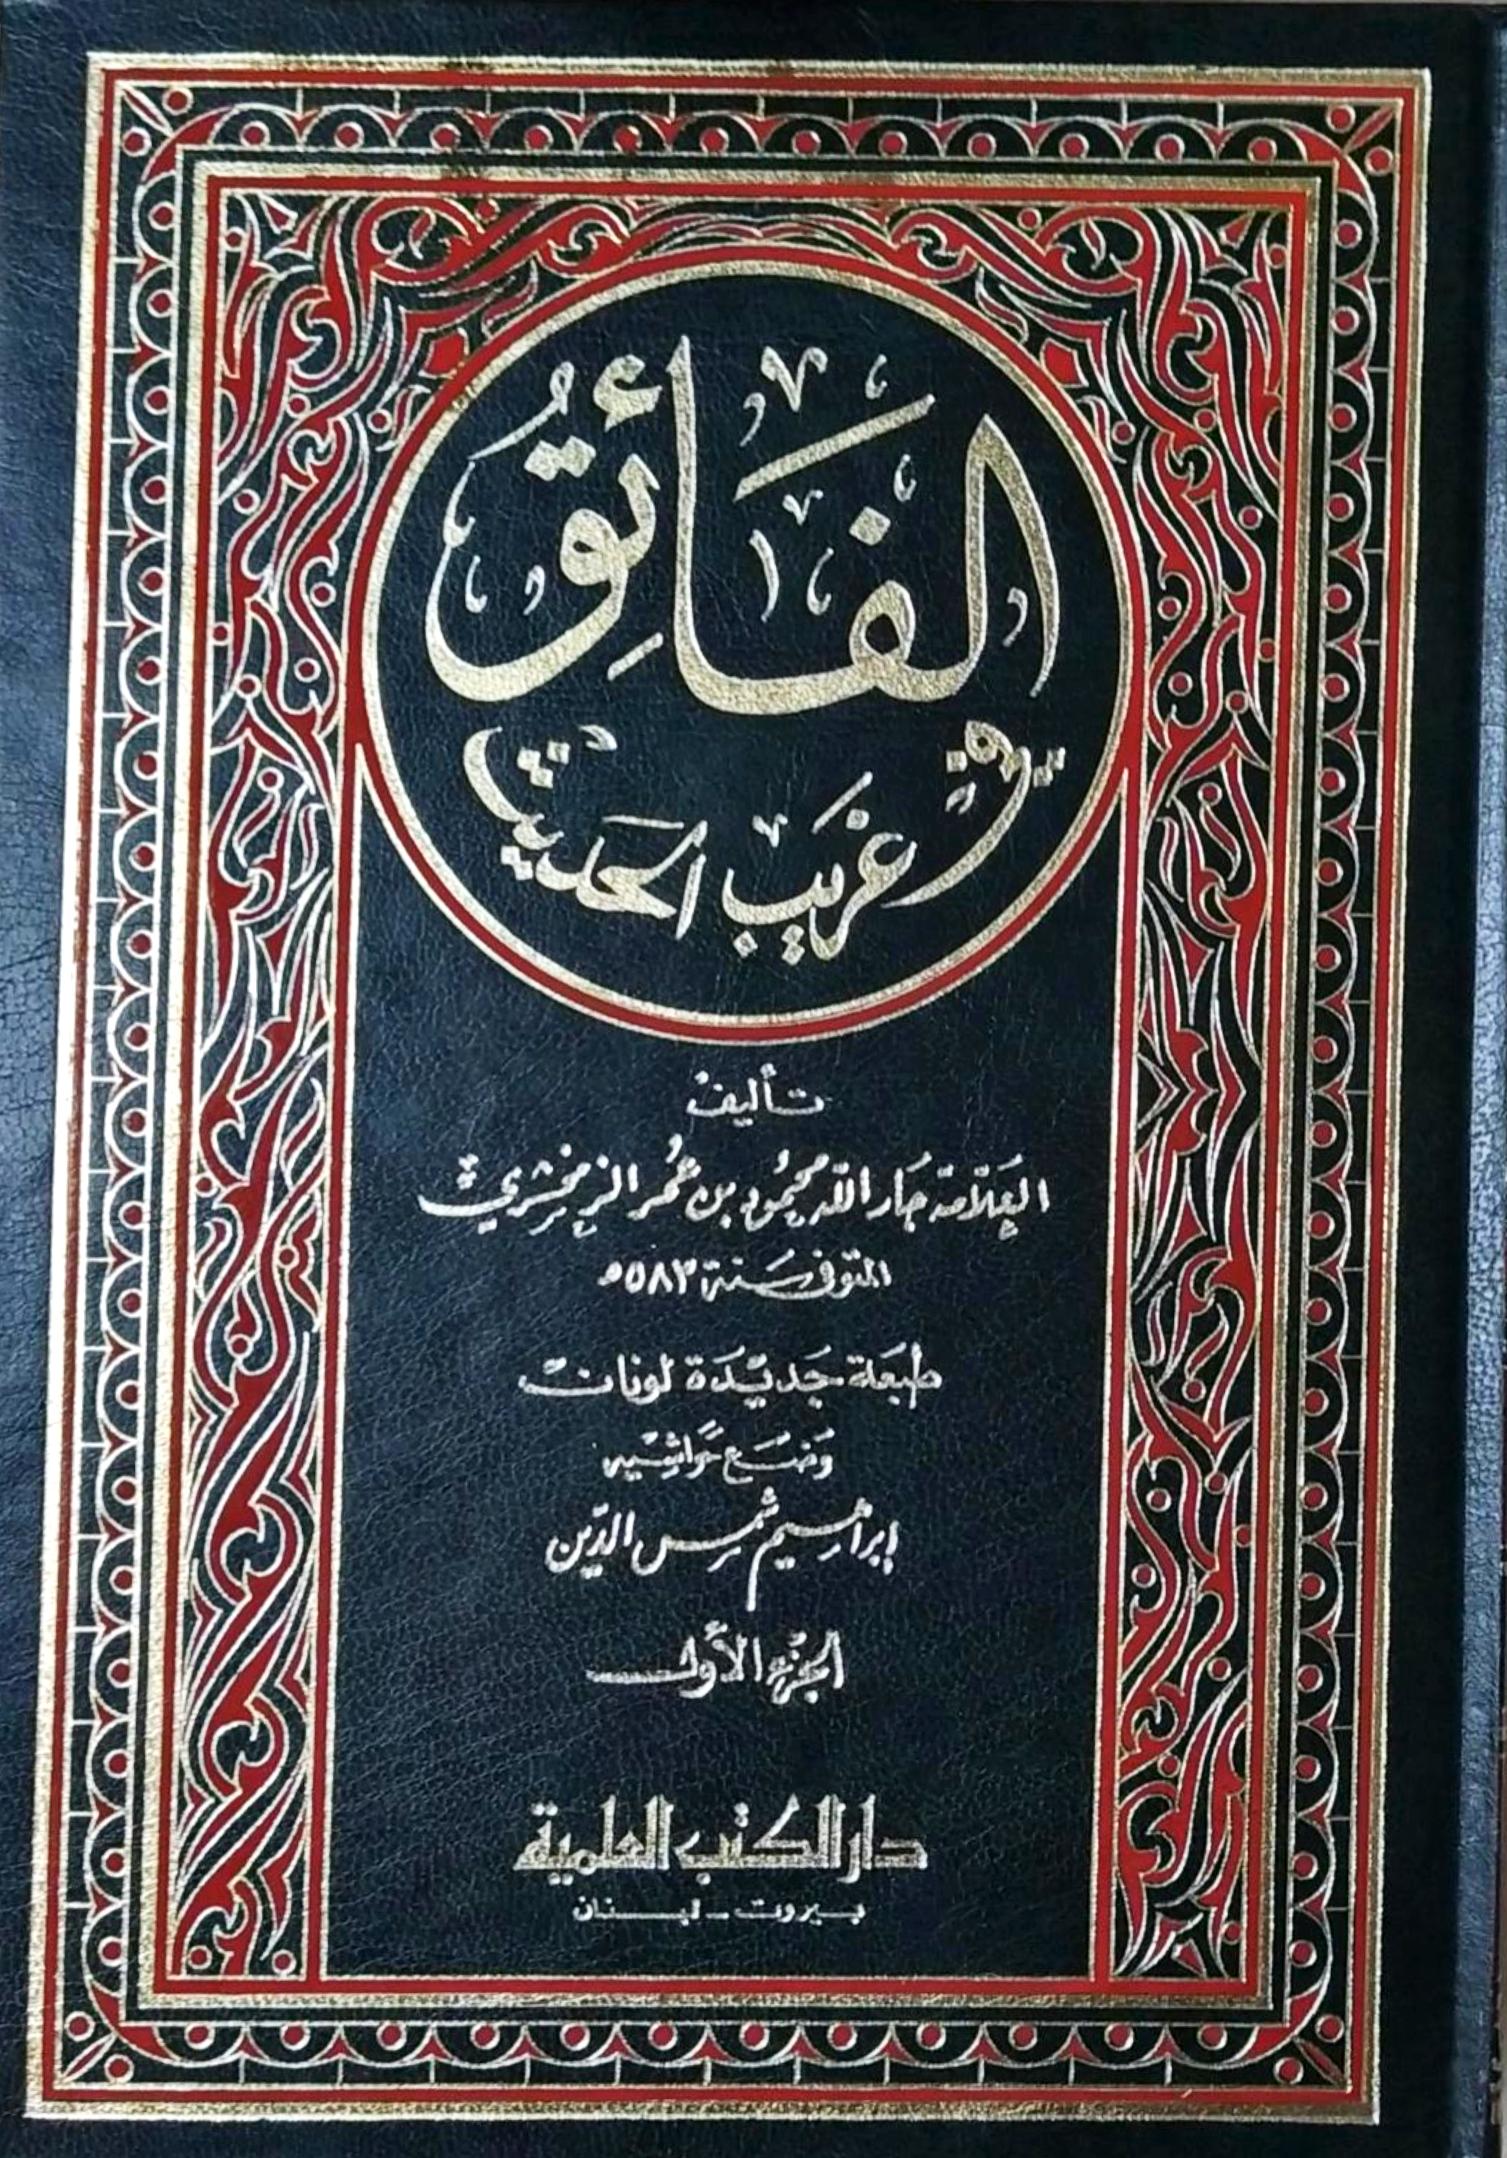 الفَائِقُ
في غريب الحديث
تأليف
العَلّامة جَار الله محمُود بن عُمر الزمخشري
المتوفى سَنة ٥٨٣ه
طبعَة جَديْدَة لونان
وَضَع حَواشيه
إبراهيم شمس الدّين
الجزء الأول
دار الكتب العلمية
بيروت - لبنان